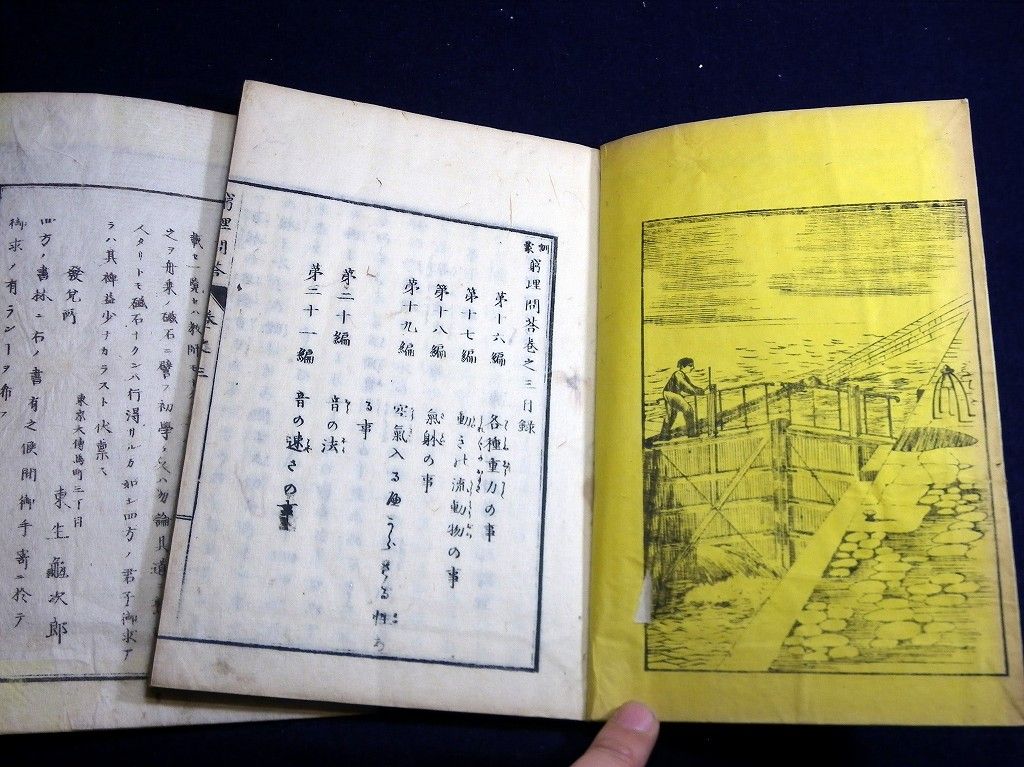 訓蒙 窮理問答巻之三目録
第十六編 各種重力の事
第十七編 動き此流動物の事
第十八編 氣躰の事
第十九編 空氣入る
る事
第二十編 音の法
第二十一編 音の速さの事
窮理問答 巻之三
之ヲ舟乗ノ磁石ニ譬フ初學ノ人ハ勿論其道
人タリトモ磁石ナクンハ行得サルカ如シ四方ノ君子御求ア
ラハ其裨益少ナカラスト伏禀ス
東京大傳馬町三丁目
發兌所 東生龜次郎
四方ノ書林ニ右ノ書有之候間御手寄ニ於テ
御求ノ有ランヿヲ希フ